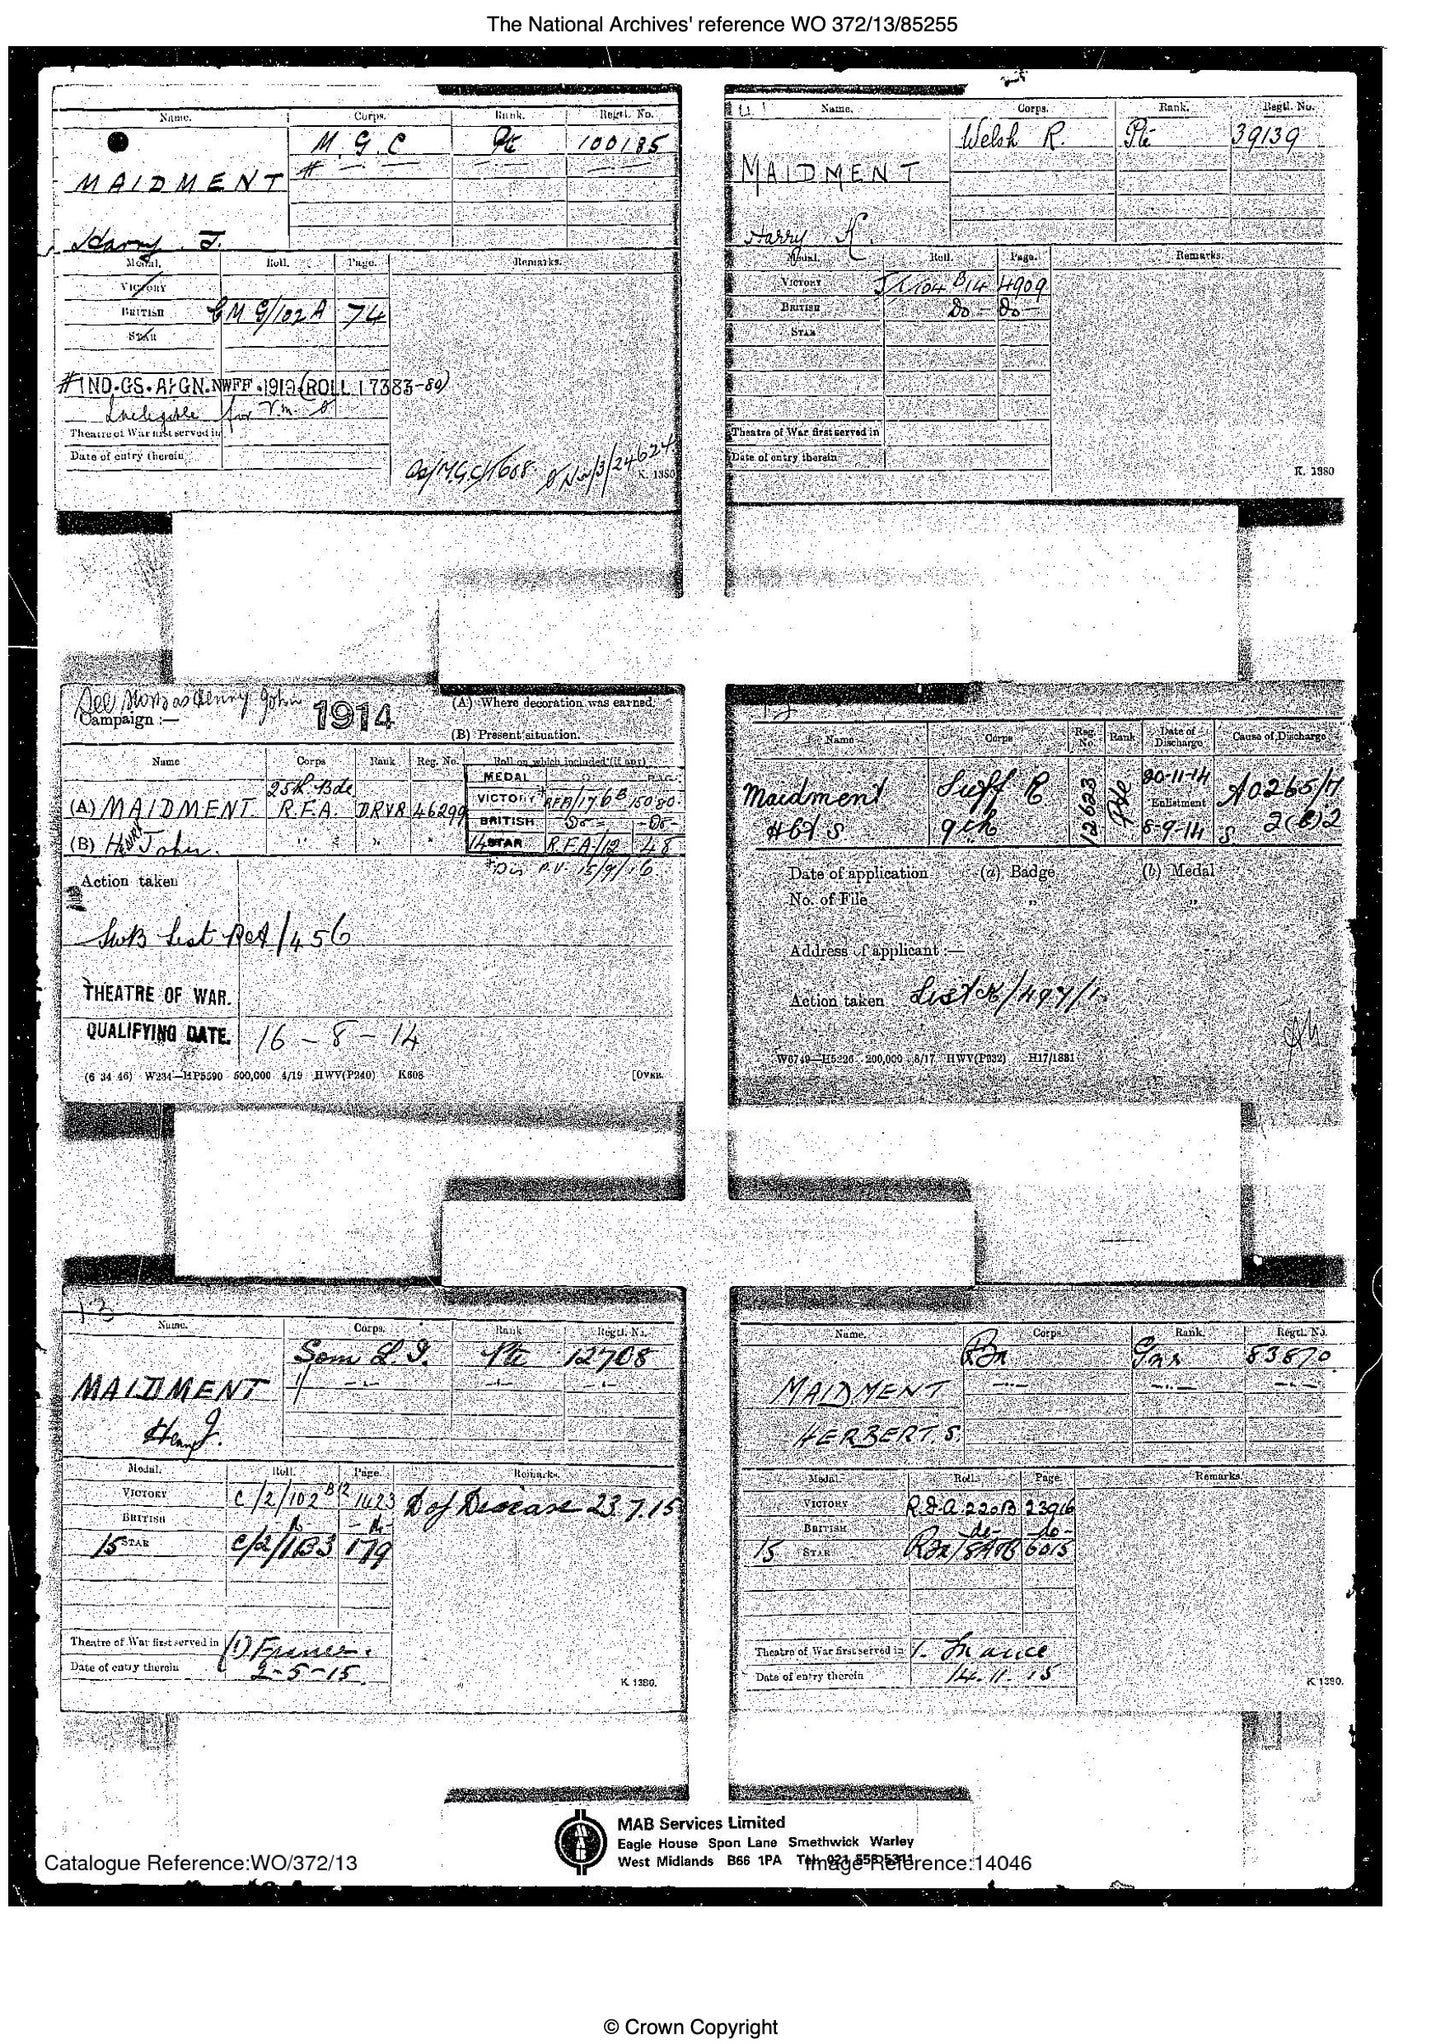 The National Archives' reference WO 372/13/85255
Name. Corps. Rank. Regtl. No.
M. G. C Pte 100185
MAIDMENT
Harry J.
Medal. Roll. Page. Remarks.
VICTORY
BRITISH MG/102A 74
STAR
#IND.GS.AFGN.NWFF.1919 (ROLL
Ineligible for
Theatre of War first served in
Date of entry therein
K. 1380
Name. Corps. Rank. Regtl. No.
Welsh R. Pte 39139
MAIDMENT
Harry K.
Medal. Roll. Page. Remarks.
VICTORY J/1/104 B14 4909
BRITISH Do - Do -
STAR
Theatre of War first served in
Date of entry therein
K. 1380
See Henry John
Campaign :— 1914
(A) Where decoration was earned.
(B) Present situation.
Name Corps Rank Reg. No. Roll on which included (if any)
MEDAL
(A) MAIDMENT 25th Bde R.F.A. DRVR 46299
VICTORY RFA/176B 15080.
BRITISH -Do-
(B) John.
14 STAR R.F.A./12 48
Action taken
SWB List RGA/456
THEATRE OF WAR.
QUALIFYING DATE. 16-8-14
(6 34 46) W234—HP5590 500,000 4/19 HWV(P240) K608 [OVER.
Name Corps Reg. No. Rank Date of Discharge Cause of Discharge
Maidment Suff R 12623 Pte 20-11-14
Enlistment
9th 8-9-14
Date of application (a) Badge (b) Medal
No. of File " "
Address of applicant :—
Action taken
W6749—H5226 200,000 8/17 HWV(P932) H17/1881
Name. Corps. Rank Regtl. No.
Som L.I. Pte 12708
MAIDMENT
Henry J.
Medal. Roll. Page. Remarks.
VICTORY C/2/102 B12 1423 D of Disease 23.7.15
BRITISH
15 STAR C/2/1B3 179
Theatre of War first served in (1) France.
Date of entry therein 2-5-15
K 1380.
Name. Corps. Rank. Regtl. No.
Gnr 83870
MAIDMENT
HERBERT. S.
Medal. Roll. Page. Remarks.
VICTORY R.G.A. 220B 23916
BRITISH -do- -do-
15 STAR 6015
Theatre of War first served in 1. France
Date of entry therein 14.11.15
K 1380.
MAB Services Limited
Eagle House Spon Lane Smethwick Warley
West Midlands B66 1PA Tel: 021 553 5311
Catalogue Reference:WO/372/13 Image Reference:14046
© Crown Copyright